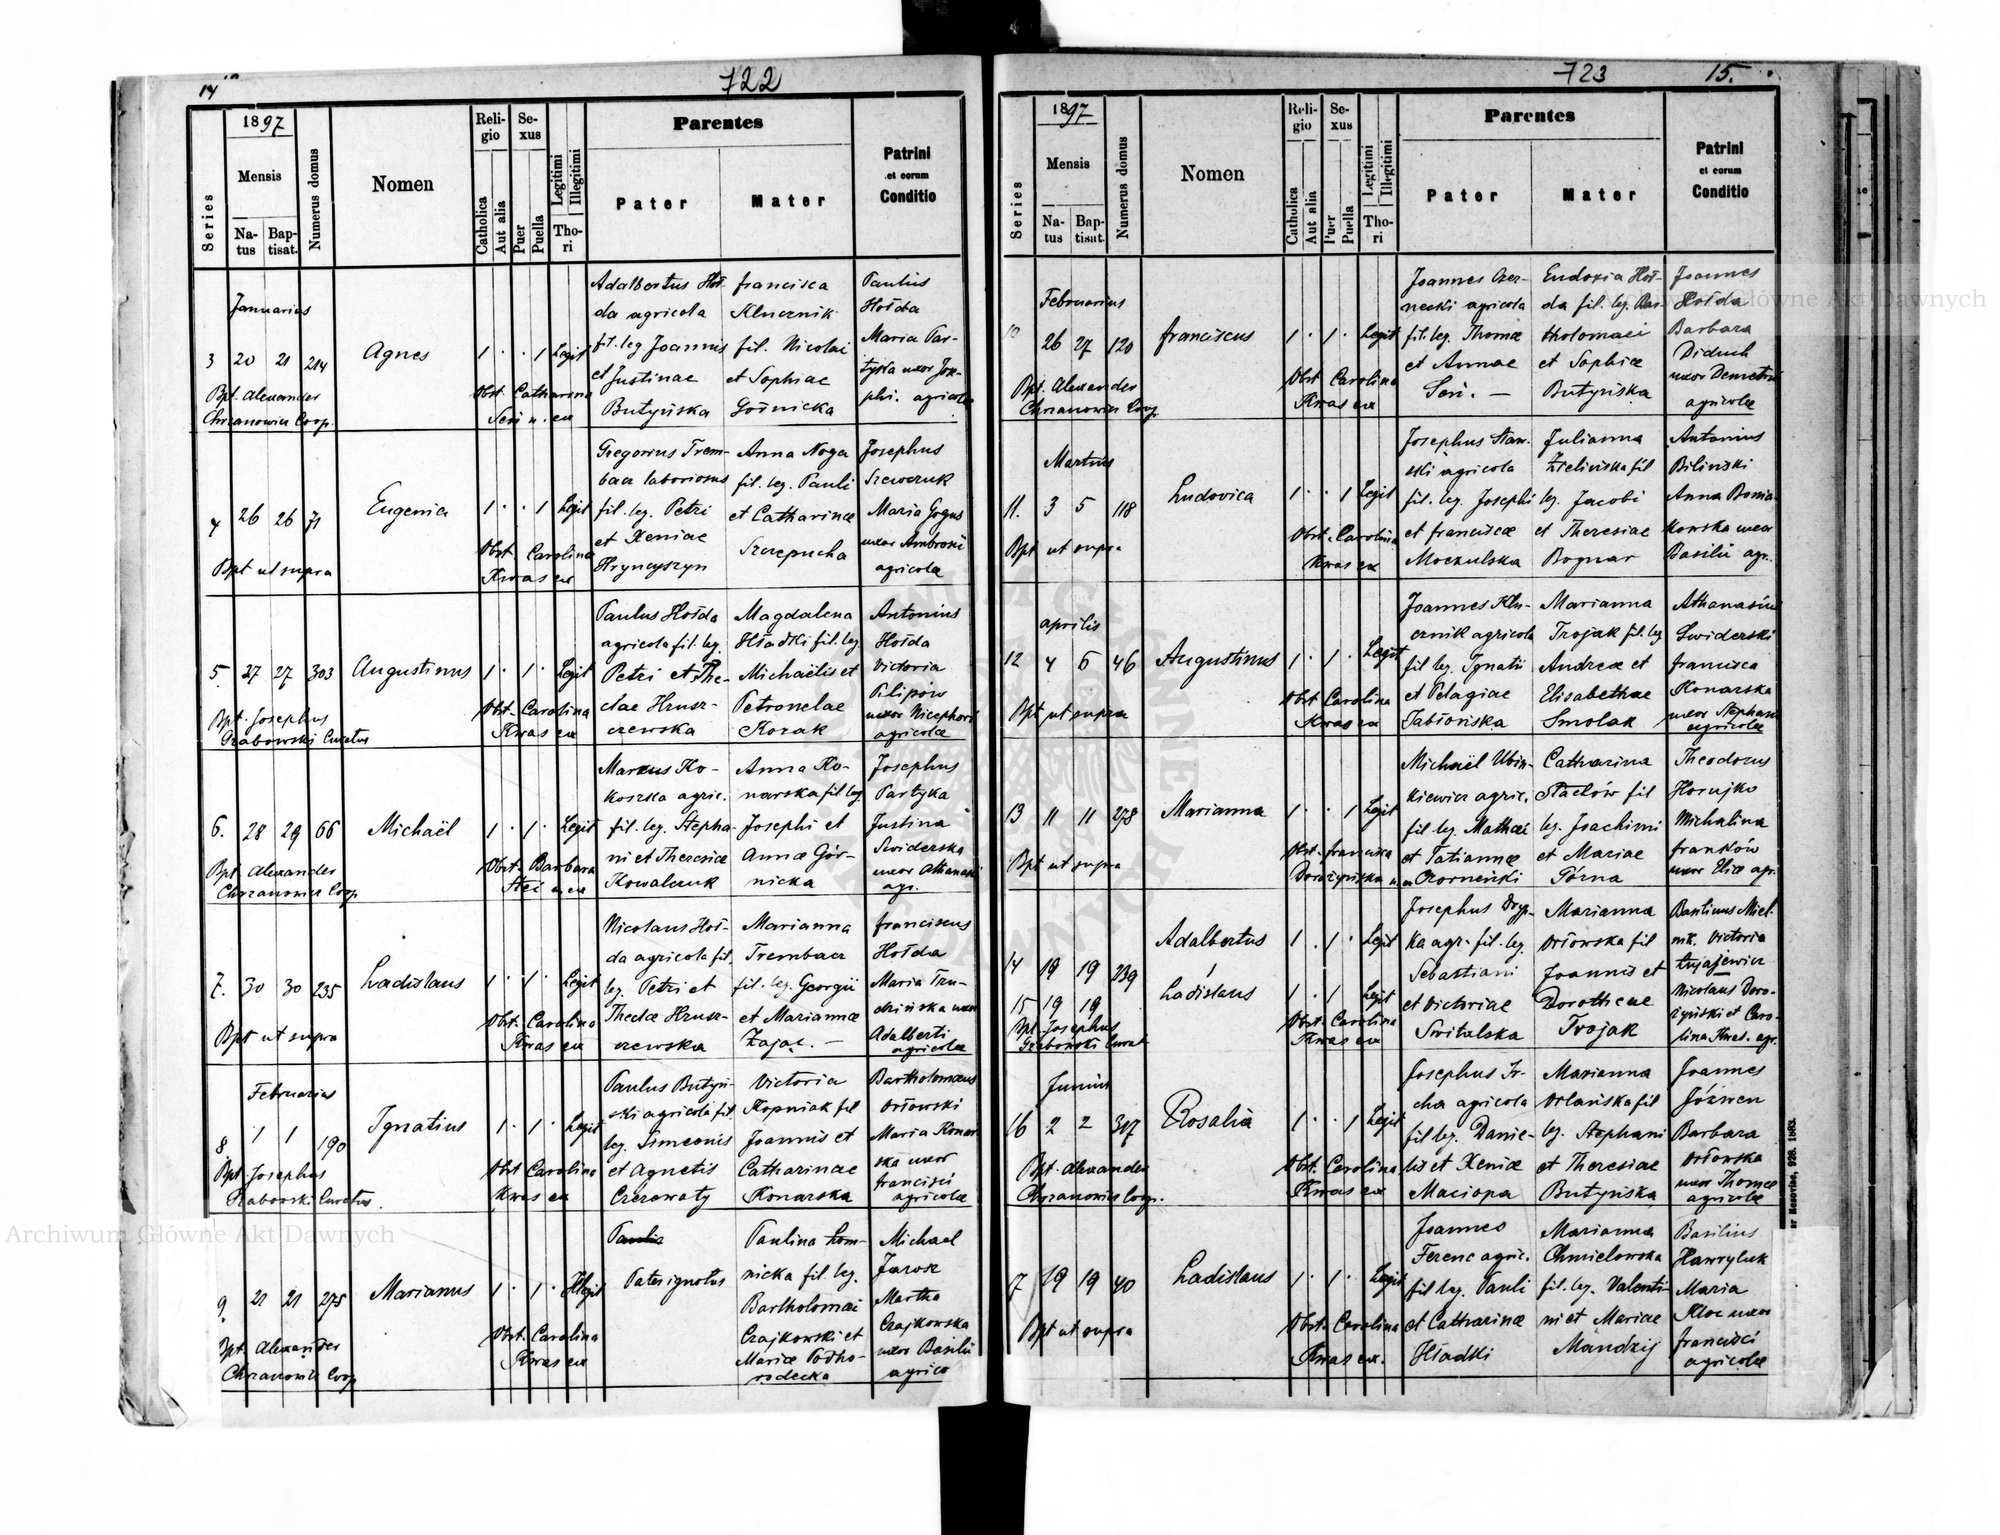 14
722
1897
Series
Mensis
Natus
Baptisat.
Numerus domus
Nomen
Religio
Catholica
Aut alia
Sexus
Puer
Puella
Legitimi
Illegitimi
Thori
Parentes
Pater
Mater
Patrini
et eorum
Conditio
Januarius
3 20 21 214 Agnes 1 · · 1 Legit
Bpt. Alexander
Chrzanowicz Coop.
Obst. Catharina
Seń n. ex
Adalbertus Hoł-
da agricola
fil. leg Joannis
et Justinae
Butyńska
Francisca
Klucznik
fil. Nicolai
et Sophiae
Gośnicka
Paulus
Hołda
Maria Par-
tyka uxor Jose-
phi. agricolae
4 26 26 71 Eugenia 1 · · 1 Legit
Bpt ut supra
Obst. Carolina
Kwas ex
Gregorius Trem-
bacz laboriosus
fil. leg. Petri
et Xeniae
Hryncyszyn
Anna Noga
fil. leg. Pauli
et Catharinae
Szczepucha
Josephus
Szewczuk
Maria Gogus
uxor Ambrosii
agricolae
5. 27 27 303 Augustinus 1 · 1 · Legit
Bpt. Josephus
Grabowski Curatus
Obst. Carolina
Kwas ex
Paulus Hołda
agricola fil. leg.
Petri et The-
clae Hrusz-
czewska
Magdalena
Hładki fil. leg
Michaëlis et
Petronelae
Kozak
Antonius
Hołda
Victoria
Pilipów
uxor Nicephori
agricolae
6. 28 29 66 Michaël 1 · 1 · Legit
Bpt. Alexander
Chrzanowicz Coop.
Obst. Barbara
n. ex
Marcus Ko-
koszka agric.
fil. leg. Stepha-
ni et Theresiae
Kowalczuk
Anna Ko-
narska fil leg.
Josephi et
Annae Gór-
nicka
Josephus
Partyka
Justina
Swiderska
uxor Athanasii
agr.
7. 30 30 235 Ladislaus 1 · 1 · Legit
Bpt ut supra
Obst. Carolina
Kwas ex
Nicolaus Hoł-
da agricola fil.
leg. Petri et
Theclae Hrusz-
czewska
Marianna
Trembacz
fil. leg. Georgii
et Mariannae
Zając. —
Franciscus
Hołda
Maria Tru-
uxor
Adalberti
agricolae
Februarius
8. 1 1 190 Ignatius 1 · 1 · Legit
Bpt. Josephus
Grabowski Curatus.
Obst Carolina
Kwas ex
Paulus Butyń-
ski agricola fil.
leg. Simeonis
et Agnetis
Czerewaty
Victoria
Kopniak fil
Joannis et
Catharinae
Konarska
Bartholomaeus
Orłowski
Maria Konar-
ska uxor
Francisci
agricolae
9. 21 21 275 Marianus 1 · 1 · Illegit
Bpt. Alexander
Chrzanowicz Coop
Obst. Carolina
Kwas ex
Pater ignotus
Paulina Łom-
nicka fil. leg.
Bartholomaei
Czajkowski et
Mariae Podho-
rodecka
Michael
Jarosz
Martha
Czajkowska
uxor Basilii
agrico
723
15.
1897
Series
Mensis
Natus
Baptisat.
Numerus domus
Nomen
Religio
Catholica
Aut alia
Sexus
Puer
Puella
Legitimi
Illegitimi
Thori
Parentes
Pater
Mater
Patrini
et eorum
Conditio
Februarius
10 26 27 120 Franciscus 1 · 1 · Legit
Bpt. Alexander
Chrzanowicz Coop.
Obst Carolina
Kwas ex
Joannes Czer-
necki agricola
fil. leg. Thomae
et Annae
Seń. —
Eudoxia Hoł-
da fil. leg. Bar-
tholomaei
et Sophiae
Butyńska
Joannes
Hołda
Barbara
Diduch
uxor Demetrii
agricolae
Martius
11. 3 5 118 Ludovica 1 · · 1 Legit
Bpt ut supra
Obst. Carolina
Kwas ex
Josephus Staw-
ski agricola
fil. leg. Josephi
et Franciscae
Moczulska
Julianna
Zielińska fil
leg. Jacobi
et Theresiae
Bognar
Antonius
Bilinski
Anna Bonia-
kowska uxor
Basilii agr.
Aprilis
12 4 5 46 Augustinus 1 · 1 · Legit
Bpt ut supra
Obst Carolina
Kwas ex
Joannes Klu-
cznik agricola
fil leg. Ignatii
et Pelagiae
Jabłońska
Marianna
Trojak fil. leg
Andreae et
Elisabethae
Smolak
Athanasius
Swiderski
Francisca
Konarska
uxor Stephani
agricolae
13 11 11 278 Marianna 1 · · 1 Legit
Bpt ut supra
Obst. Francisca
Dorożyńska n. ex
Michaël Ubin-
kiewicz agric.
fil leg. Mathaei
et Tatiannae
Czorneński
Catharina
Staclów fil
leg. Joachimi
et Mariae
Górna
Theodorus
Horujko
Michalina
Franków
uxor Eliae agr.
14 19 19 239 Adalbertus 1 · 1 · Legit
15 19 19 Ladislaus 1 · 1 Legit
Bpt. Josephus
Grabowski Curat
Obst. Carolina
Kwas ex
Josephus Dryp-
ka agr. fil. leg.
Sebastiani
et Victoriae
Switalska
Marianna
Orłowska fil
Joannis et
Dorotheae
Trojak
Basilius Miel-
nik. Victoria
Nicolaus Doro-
żyński et Caro-
lina Kwas. agr.
Junius
16 2 2 317 Rosalia 1 · · 1 Legit
Bpt. Alexander
Chrzanowicz Coop.
Obst. Carolina
Kwas ex
Josephus Ir-
cha agricola
fil leg. Danie-
lis et Xeniae
Maciopa
Marianna
Orlańska fil
leg. Stephani
et Theresiae
Butyńska
Joannes
Józwen
Barbara
Orłowska
uxor Thomae
agricolae
17 19 19 40 Ladislaus 1 · 1 · Legit
Bpt ut supra
Obst. Carolina
Kwas ex.
Joannes
Ferenc agric.
fil leg. Pauli
et Catharinae
Hładki
Marianna
Chmielowska
fil. leg. Valenti-
ni et Mariae
Mandzij
Basilius
Hawryluk
Maria
Kloc uxor
Francisci
agricolae
Archiwum Główne Akt Dawnych
Archiwum Główne Akt Dawnych